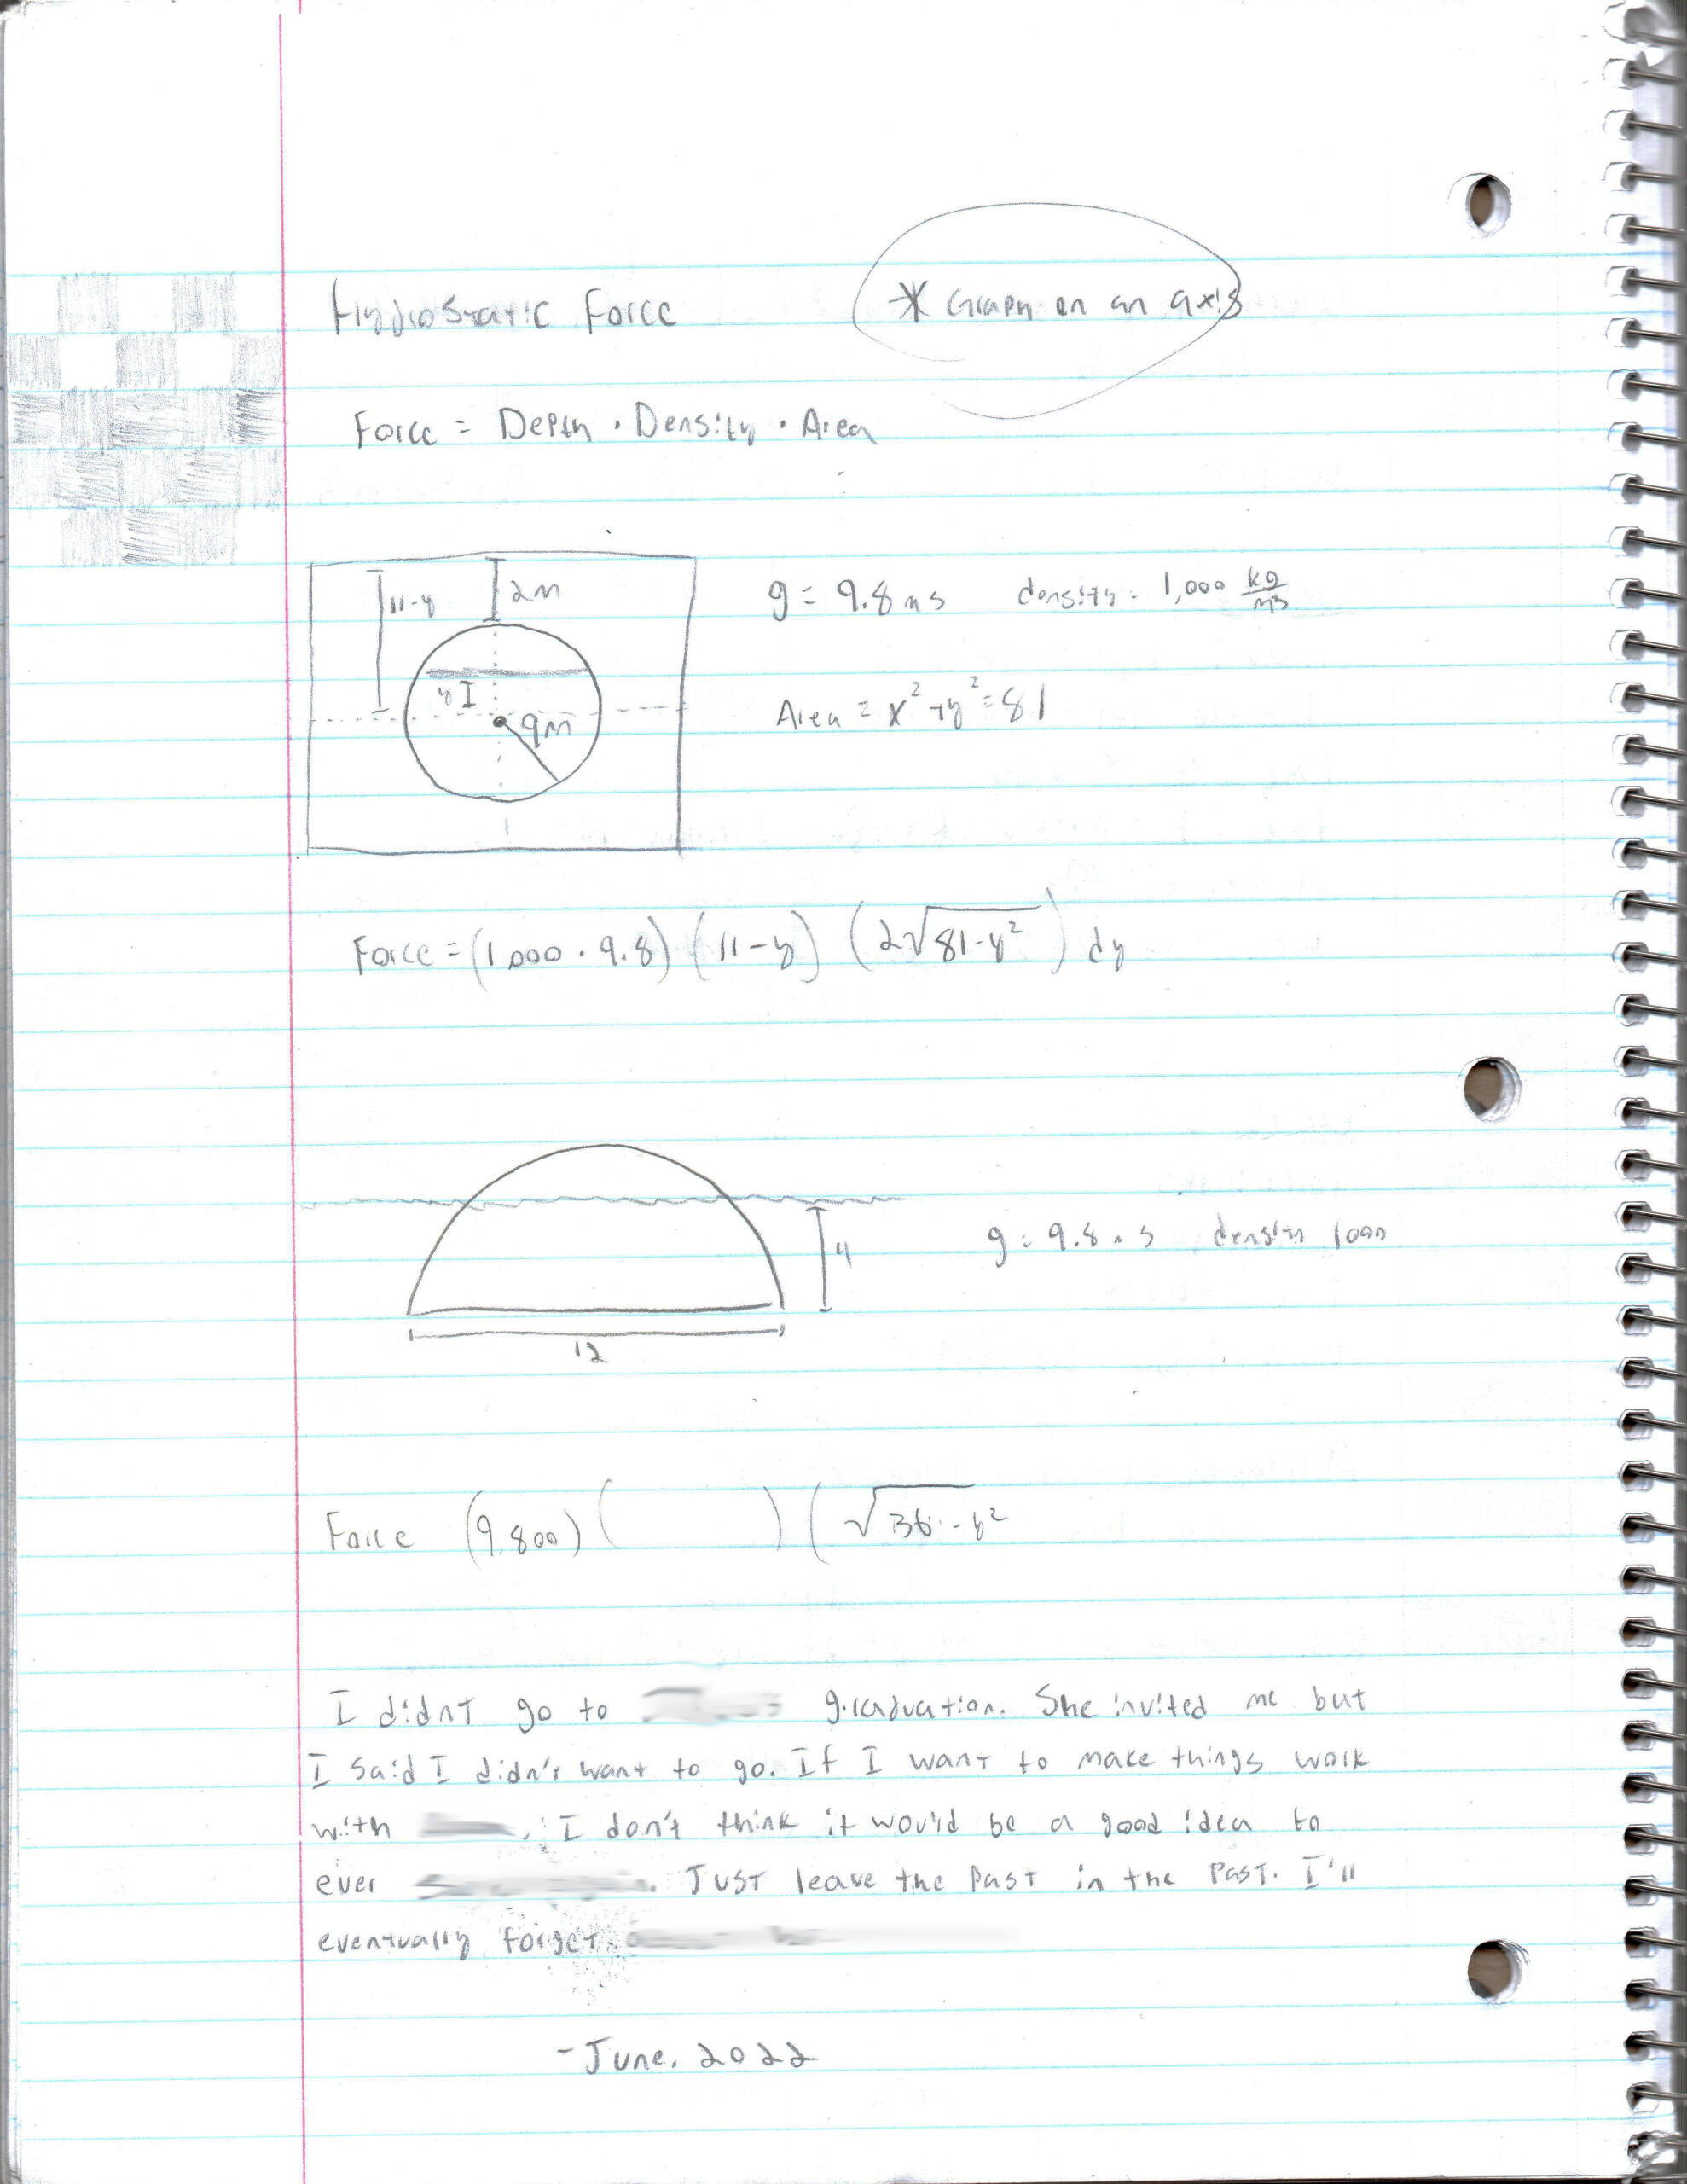 HydroStatic Force
* Graph on an axis
Force = Depth · Density · Area
11-y
2m
g = 9.8 ms density = 1,000 kg/m3
y
9m
Area = x² + y² = 81
Force = (1,000 · 9.8) (11-y) (2√81-y²) dy
4
g = 9.8 ms density 1000
12
Force (9.800) ( ) (√36-y²
I didnt go to graduation. She invited me but
I said I didn't want to go. If I want to make things work
with , I don't think it would be a good idea to
ever . Just leave the past in the past. I'll
eventually forget
- June, 2022